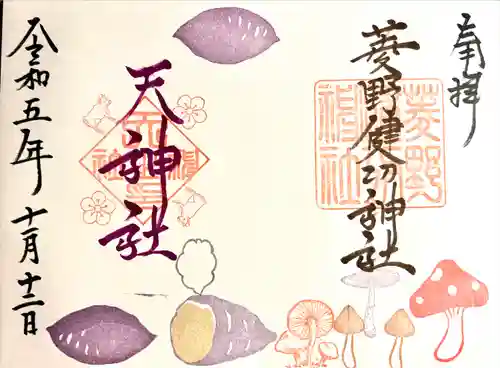 奉拝
菱野健功神社
菱野健功神社
天神社
令和五年 十一月十二日